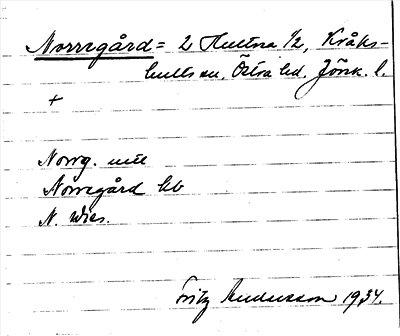 Norregård = 2 Hultna 1/2, Kråks-
hults sn, Östra hd, Jönk. l.
+
Norrg. mtl
Norregård kb
N. Wies.
Fritz Andersson 1934.